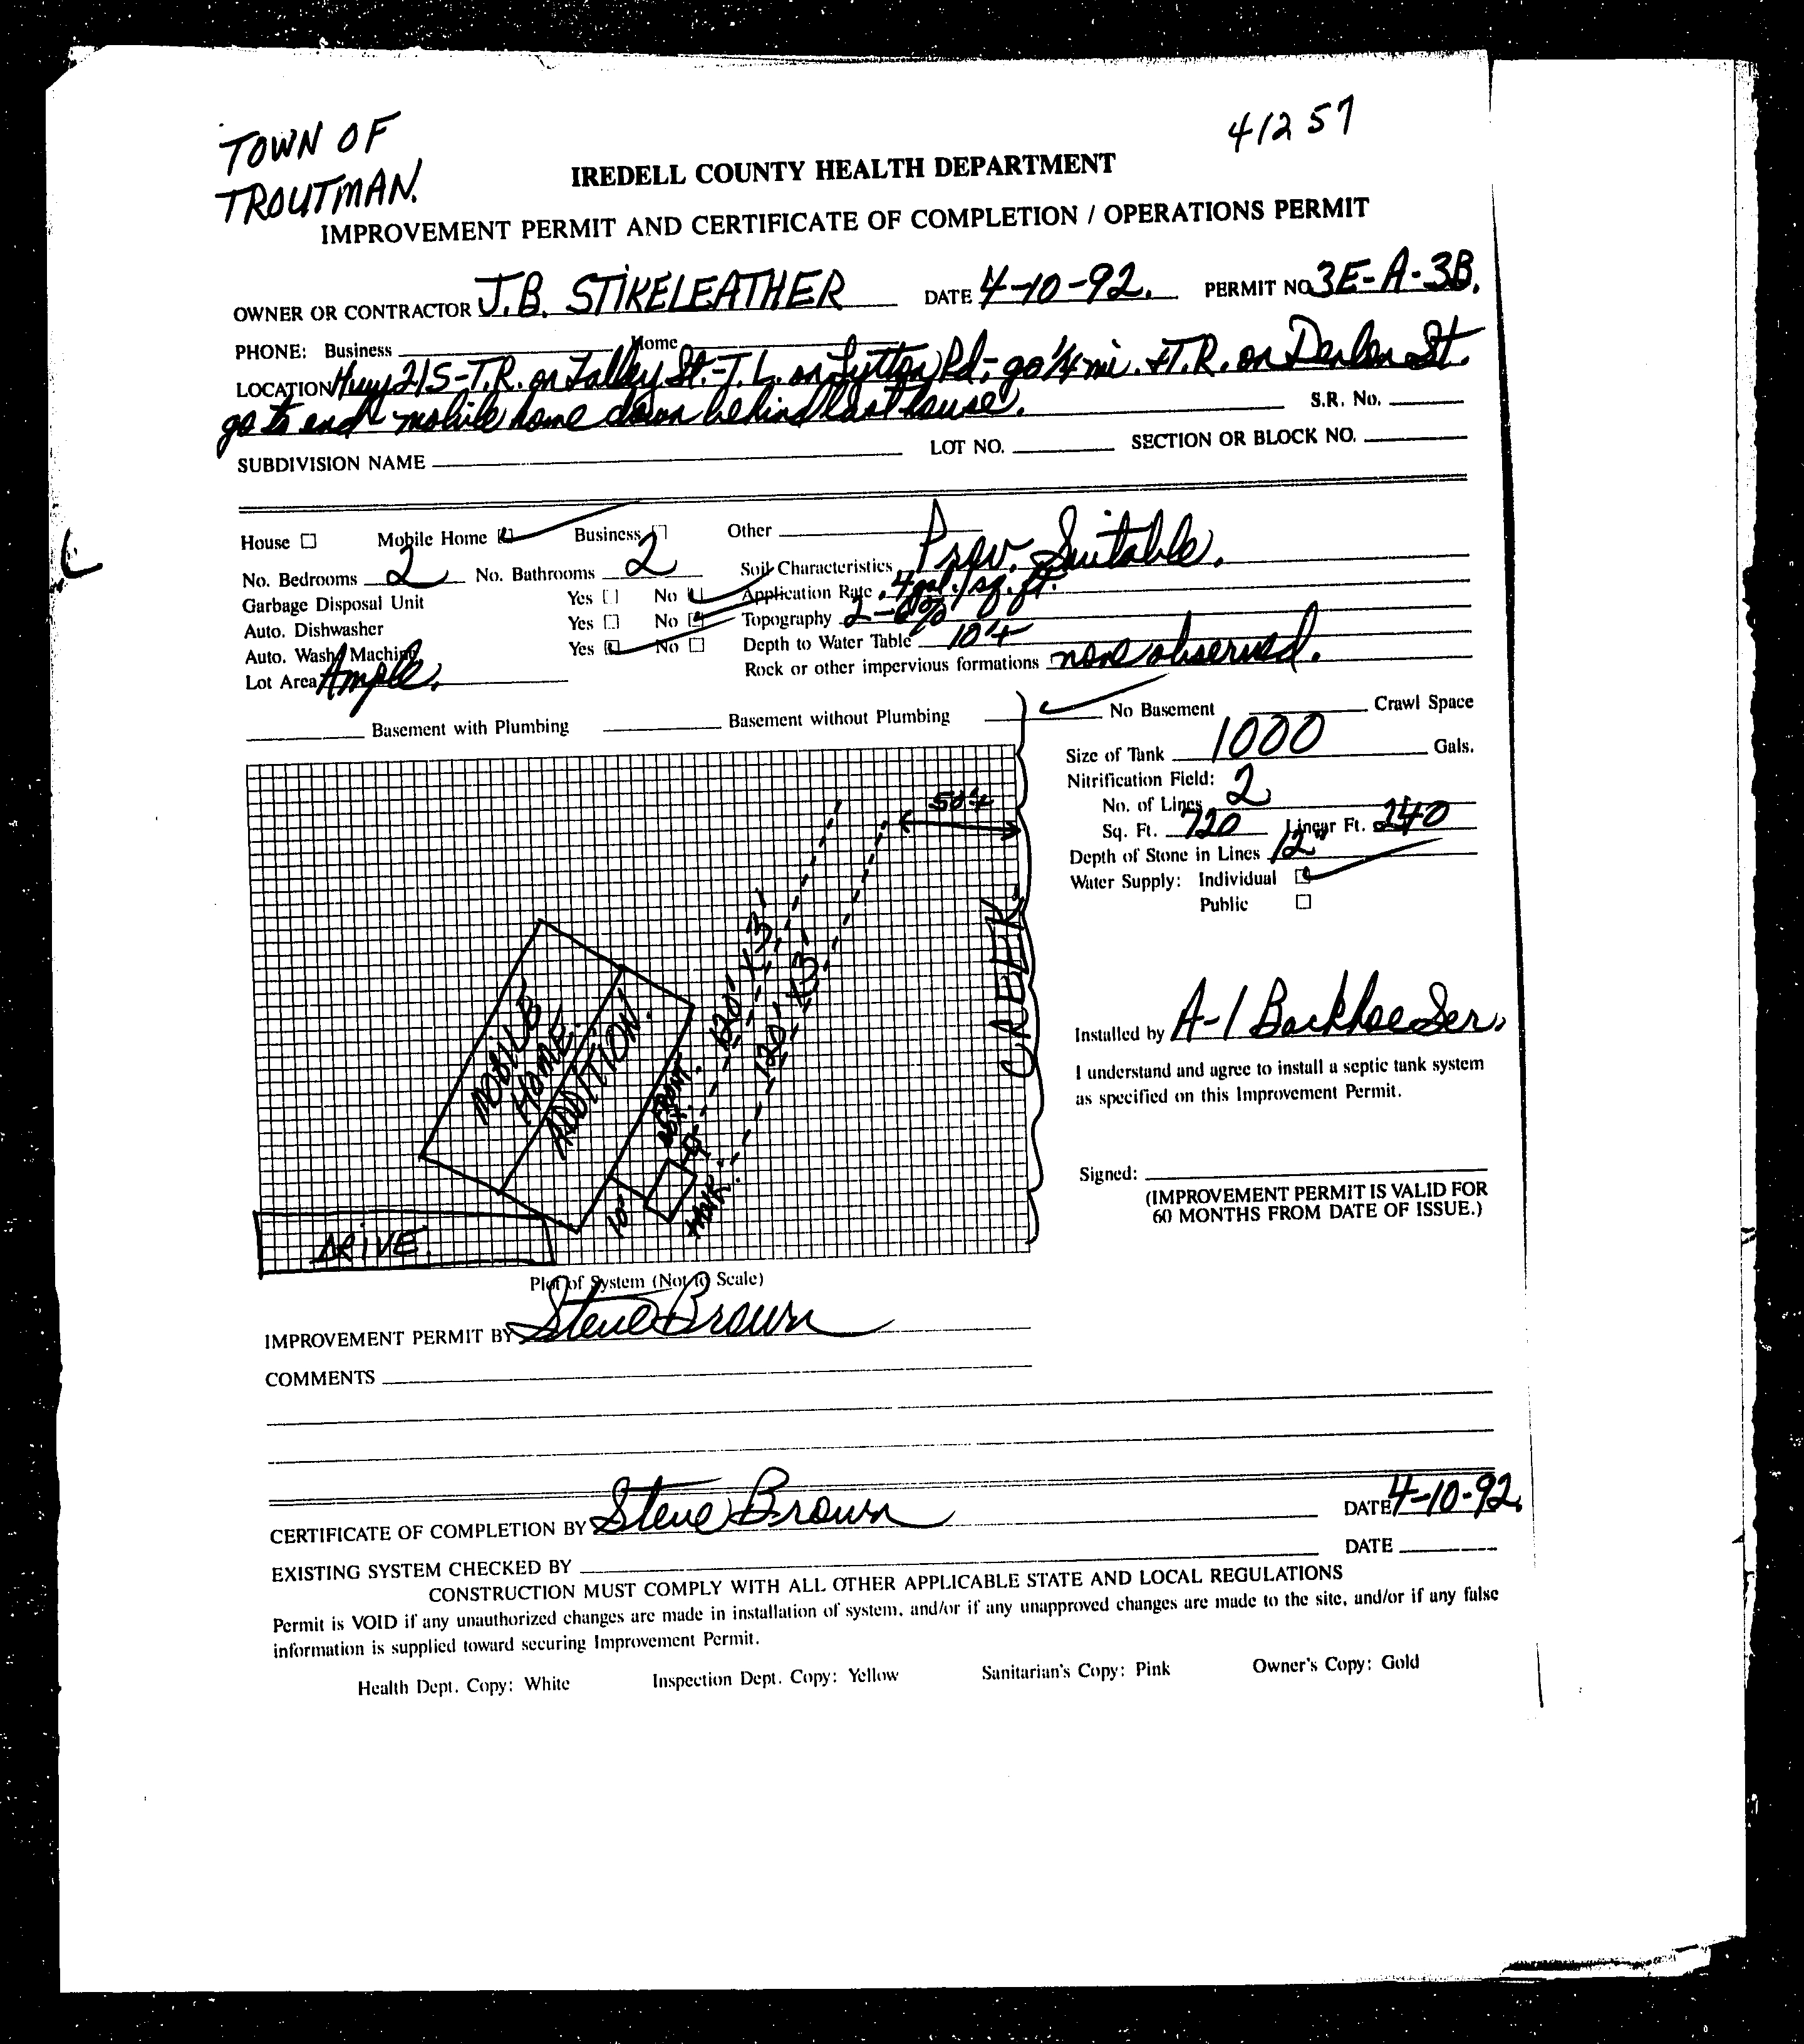 TOWN OF
TROUTMAN.
41257
IREDELL COUNTY HEALTH DEPARTMENT
IMPROVEMENT PERMIT AND CERTIFICATE OF COMPLETION / OPERATIONS PERMIT
OWNER OR CONTRACTOR J.B. STIKELEATHER DATE 4-10-92. PERMIT NO. 3E-A-3B.
PHONE: Business Home
LOCATION Hwy 21S-T.R. on Talley St.-T.L. on Lytton Rd; go 1/4 mi. +T.R. on St.
go to end - mobile home down behind last house. S.R. No.
SUBDIVISION NAME LOT NO. SECTION OR BLOCK NO.
House □ Mobile Home □ Business □ Other
No. Bedrooms 2 No. Bathrooms 2 Soil Characteristics Prov. Suitable.
Garbage Disposal Unit Yes □ No □ Application Rate .4 gal./sq. ft.
Auto. Dishwasher Yes □ No □ Topography 2-6%
Auto. Wash Machine Yes □ No □ Depth to Water Table 10'+
Lot Area Ample. Rock or other impervious formations none observed.
Basement with Plumbing Basement without Plumbing No Basement Crawl Space
Size of Tank 1000 Gals.
Nitrification Field:
No. of Lines 2
Sq. Ft. 720 Linear Ft. 240
Depth of Stone in Lines 12"
Water Supply: Individual □
Public □
50'+
CREEK.
120' X 3'
120' X 3'
MOBILE
HOME.
ADDITION.
10'
TANK.
DRIVE.
Installed by A-1 Backhoe Ser.
I understand and agree to install a septic tank system
as specified on this Improvement Permit.
Signed:
(IMPROVEMENT PERMIT IS VALID FOR
60 MONTHS FROM DATE OF ISSUE.)
Plot of System (Not to Scale)
IMPROVEMENT PERMIT BY Steve Brown
COMMENTS
CERTIFICATE OF COMPLETION BY Steve Brown DATE 4-10-92.
EXISTING SYSTEM CHECKED BY DATE
CONSTRUCTION MUST COMPLY WITH ALL OTHER APPLICABLE STATE AND LOCAL REGULATIONS
Permit is VOID if any unauthorized changes are made in installation of system, and/or if any unapproved changes are made to the site, and/or if any false
information is supplied toward securing Improvement Permit.
Health Dept. Copy: White Inspection Dept. Copy: Yellow Sanitarian's Copy: Pink Owner's Copy: Gold